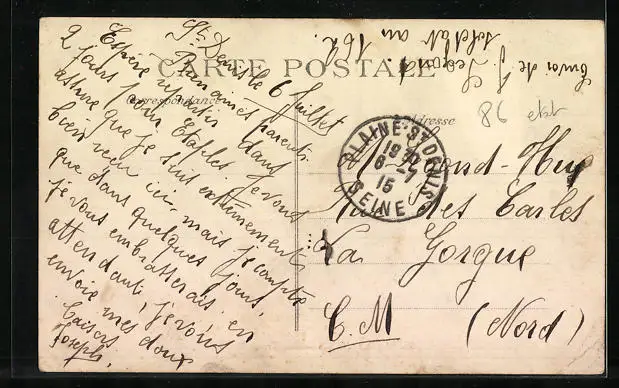 CARTE POSTALE
Correspondance
Adresse
St Denis le 6 Juillet
Bien aimés parents
Espère repartir dans
2 jours pour Etaples Je vous
assure que je suis extrèmements
bien reçu ici, mais je compte
que dans quelques jours,
je vous embrasserais en
attendant, je vous
envoie mes doux
baisers
Joseph.
Envoi de J Legrand
soldat au 162
86
PLAINE ST DENIS
6 - 7
15
SEINE
Legrand-Huy
Rue des Carles
La Gorgue
C. M (Nord)